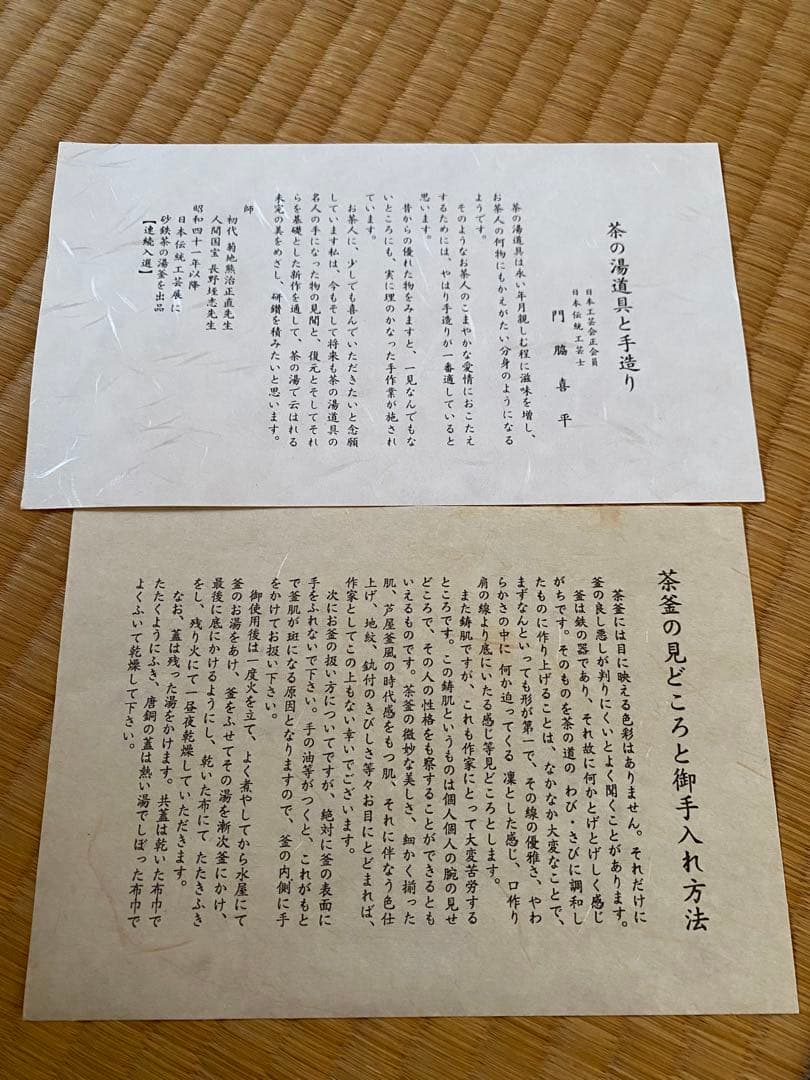 茶の湯道具と手造り
日本工芸会正会員
日本伝統工芸士
門脇喜平
茶の湯道具は永い年月親しむ程に滋味を増し、
お茶人の何物にもかえがたい分身のようになる
ようです。
そのようなお茶人のこまやかな愛情におこたえ
するためには、やはり手造りが一番適していると
思います。
昔からの優れた物をみますと、一見なんでもな
いところにも、実に理のかなった手作業が施され
ています。
お茶人に、少しでも喜んでいただきたいと念願
しています私は、今もそして将来も茶の湯道具の
名人の手になった物の見聞と、復元とそしてそれ
らを基礎とした新作を通して、茶の湯で云はれる
未完の美をめざし、研鑽を積みたいと思います。
師
初代 菊地熊治正直先生
人間国宝 長野垤志先生
昭和四十一年以降
日本伝統工芸展に
砂鉄茶の湯釜を出品
【連続入選】
茶釜の見どころと御手入れ方法
茶釜には目に映える色彩はありません。それだけに
釜の良し悪しが判りにくいとよく聞くことがあります。
釜は鉄の器であり、それ故に何かとげとげしく感じ
がちです。そのものを茶の道の わび・さびに調和し
たものに作り上げることは、なかなか大変なことで、
まずなんといっても形が第一で、その線の優雅さ、やわ
らかさの中に 何か迫ってくる 凜とした感じ、口作り
肩の線より底にいたる感じ等見どころとします。
また鋳肌ですが、これも作家にとって大変苦労する
ところです。この鋳肌というものは個人個人の腕の見せ
どころで、その人の性格をも察することができるとも
いえるものです。茶釜の微妙な美しさ、細かく揃った
肌、芦屋釜風の時代感をもつ肌、それに伴なう色仕
上げ、地紋、釻付のきびしさ等々お目にとどまれば、
作家としてこの上もない幸いでございます。
次にお釜の扱い方についてですが、絶対に釜の表面に
手をふれないで下さい。手の油等がつくと、これがもと
で釜肌が斑になる原因となりますので、釜の内側に手
をかけてお扱い下さい。
御使用後は一度火を立て、よく煮やしてから水屋にて
釜のお湯をあけ、釜をふせてその湯を漸次釜にかけ、
最後に底にかけるようにし、乾いた布にて たたきふき
をし、残り火にて一昼夜乾燥していただきます。
なお、蓋は残った湯をかけます。共蓋は乾いた布巾で
たたくようにふき、唐銅の蓋は熱い湯でしぼった布巾で
よくふいて乾燥して下さい。